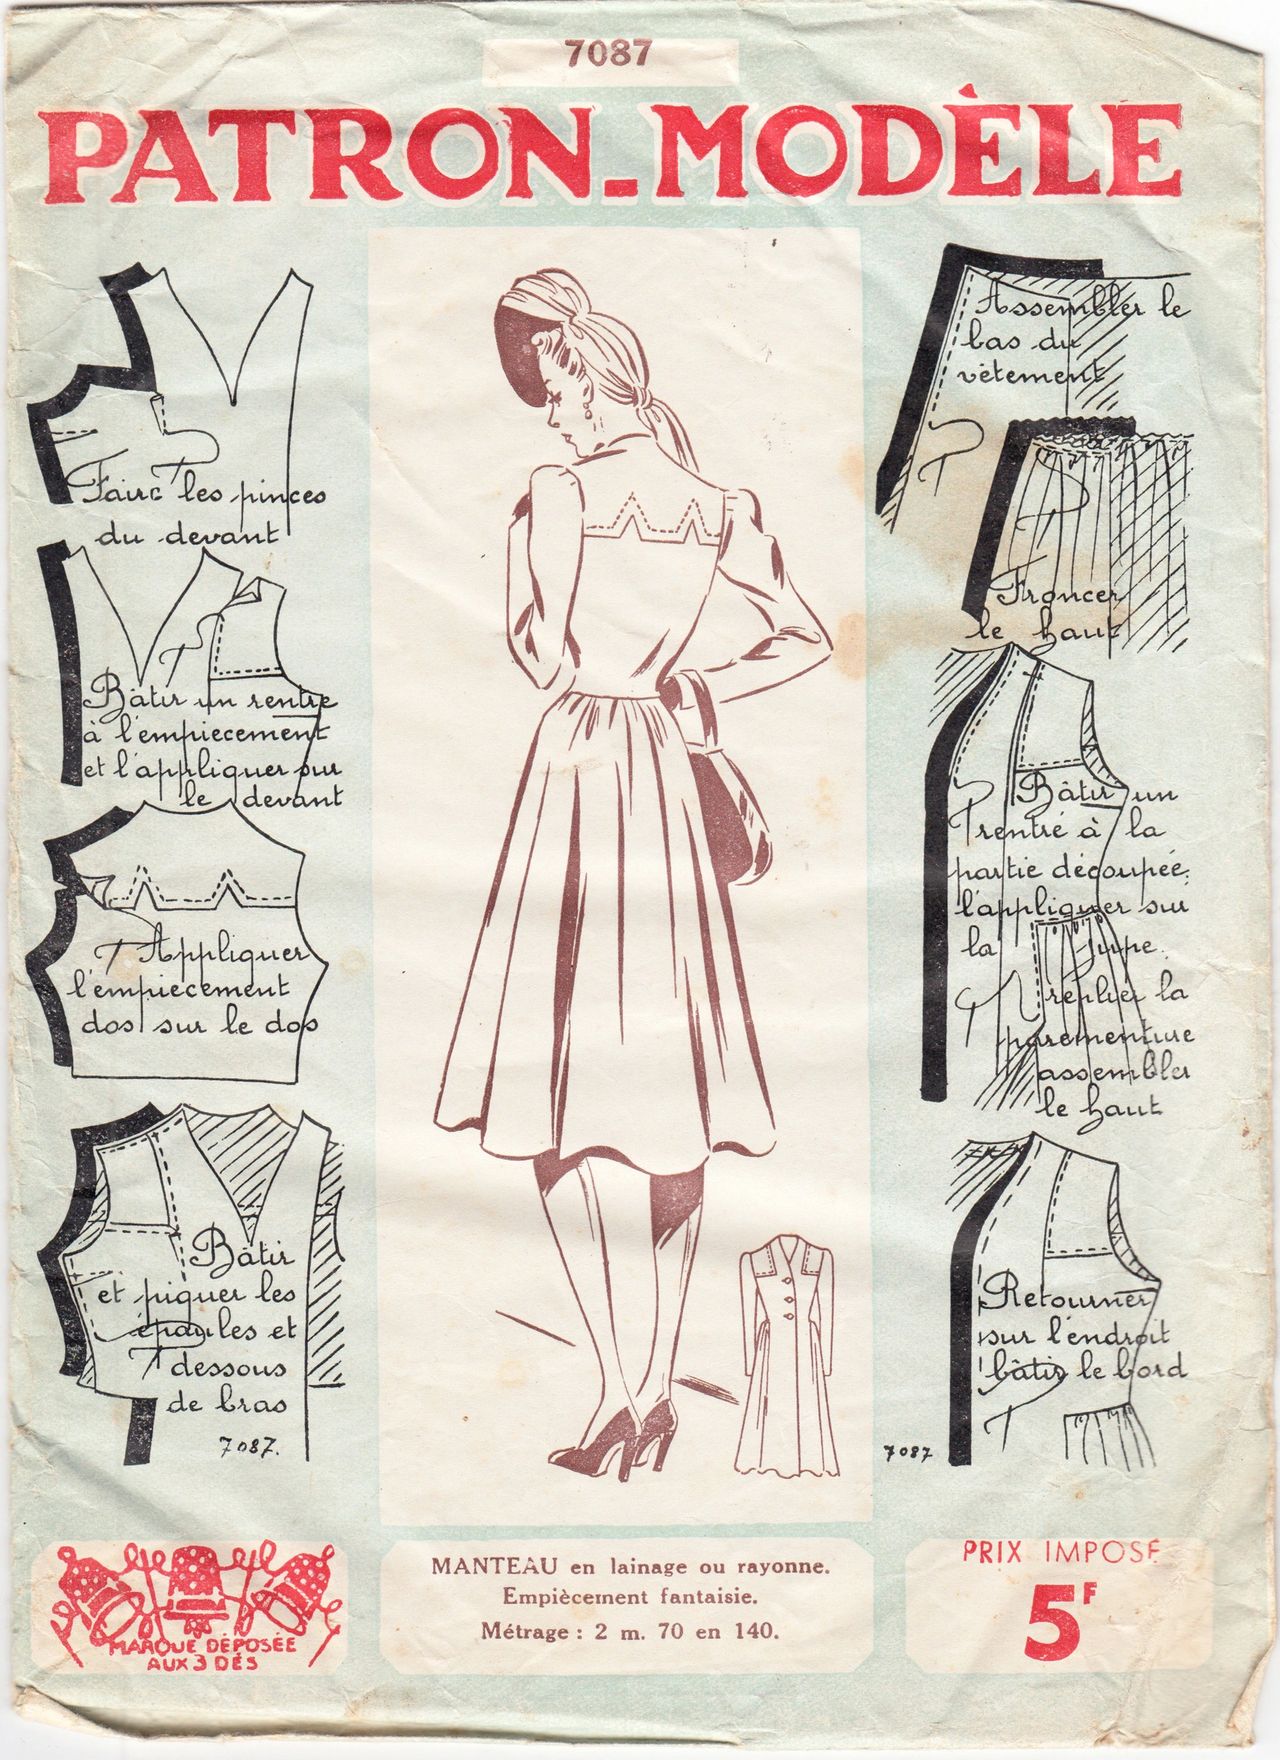 7087
PATRON-MODÈLE
Faire les pinces
du devant
Bâtir un rentré
à l'empiecement
et l'appliquer sur
le devant
Appliquer
l'empiecement
dos sur le dos
Bâtir
et piquer les
épaules et
dessous
de bras
7087.
Assembler le
bas du
vêtement
Froncer
le haut
Bâtir un
rentré à la
partie découpée,
l'appliquer sur
la jupe.
replier la
parementure
assembler
le haut
Retourner
sur l'endroit
bâtir le bord
7087
MARQUE DÉPOSÉE
AUX 3 DÉS
MANTEAU en lainage ou rayonne.
Empiècement fantaisie.
Métrage : 2 m. 70 en 140.
PRIX IMPOSÉ
5F